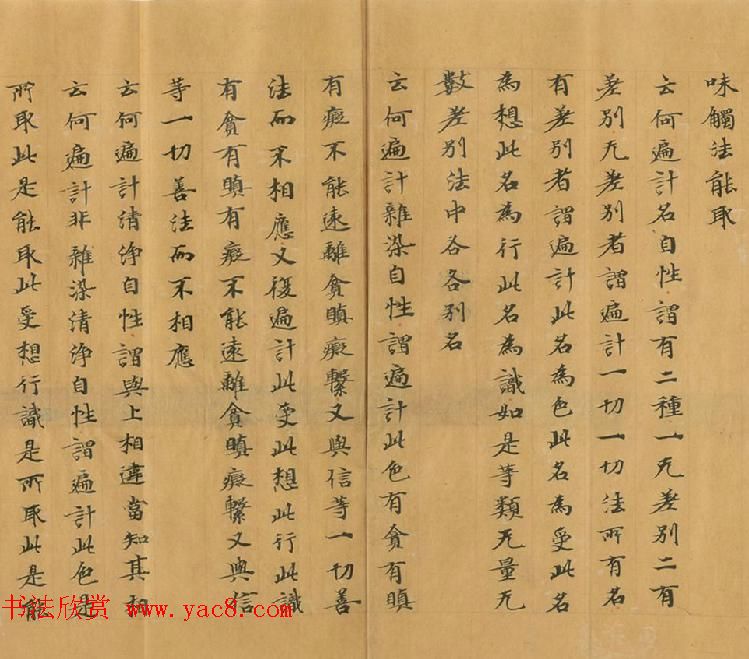 味觸法能取
云何遍計名自性謂有二種一无差別二有
差別无差別者謂遍計一切一切法所有名
有差別者謂遍計此名為色此名為受此名
為想此名為行此名為識如是等類无量无
數差別法中各各別名
云何遍計雜染自性謂遍計此色有貪有瞋
有癡不能遠離貪瞋癡繫又與信等一切善
法而不相應又復遍計此受此想此行此識
有貪有瞋有癡不能遠離貪瞋癡繫又與信
等一切善法而不相應
云何遍計清淨自性謂與上相違當知其相
云何遍計非雜染清淨自性謂遍計此色是
所取此是能取此受想行識是所取此是能
书法欣赏 www.yac8.com